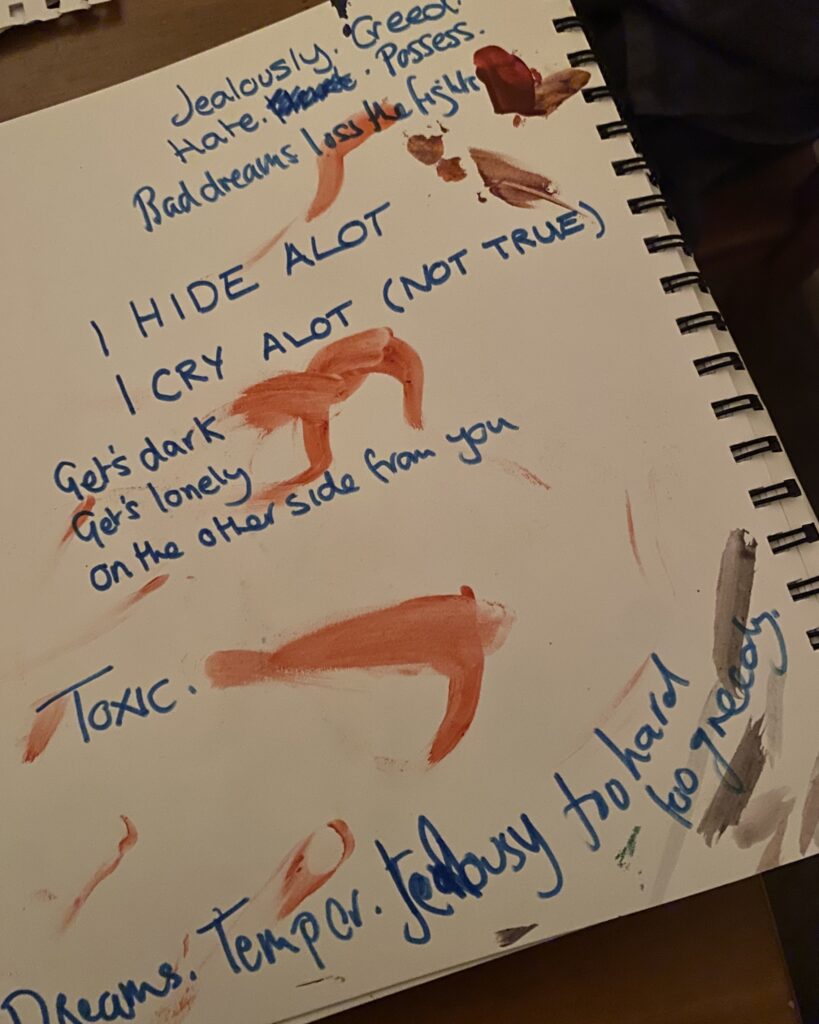 Jealously. Greed.
Hate. Possess.
Bad dreams loss the fights
I HIDE ALOT
I CRY ALOT (NOT TRUE)
Get's dark
Get's lonely
on the other side from you
Toxic.
Dreams. Temper. Jealousy too hard
too greedy.